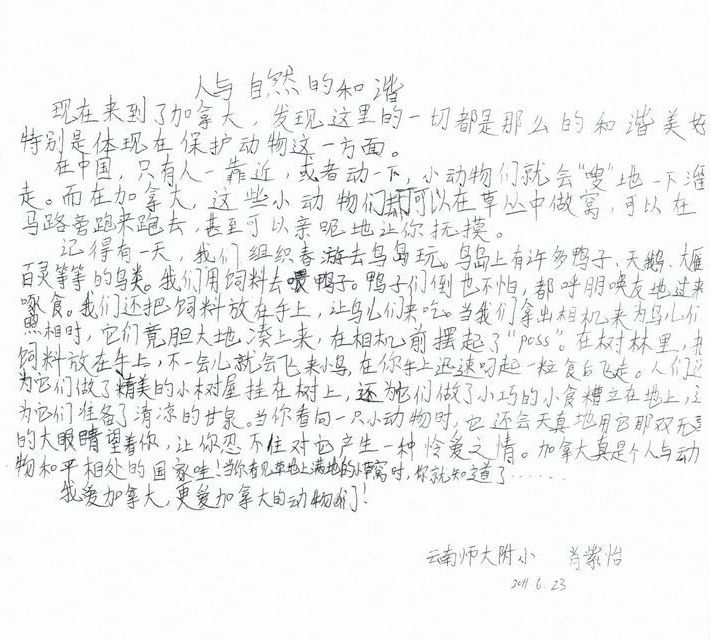 人与自然的和谐
现在来到了加拿大，发现这里的一切都是那么的和谐美好
特别是体现在保护动物这一方面。
在中国，只有人一靠近，或者动一下，小动物们就会“嗖”地一下溜
走。而在加拿大，这些小动物们却可以在草丛中做窝，可以在
马路旁跑来跑去，甚至可以亲昵地让你抚摸。
记得有一天，我们组织春游去鸟岛玩。鸟岛上有许多鸭子、天鹅、大雁
百灵等等的鸟类。我们用饲料去喂鸭子。鸭子们倒也不怕，都呼朋唤友地过来
啄食。我们还把饲料放在手上，让鸟儿们来吃。当我们拿出相机来为鸟儿们
照相时，它们竟胆大地凑上来，在相机前摆起了“poss”。在树林里，
饲料放在手上，不一会儿就会飞来小鸟，在你手上迅速叼起一粒食后飞走。人们还
为它们做了精美的小木树屋挂在树上，还为它们做了小巧的小食槽立在地上，还
为它们准备了清凉的甘泉。当你看向一只小动物时，它还会天真地用它那双无
的大眼睛望着你，让你忍不住对它产生一种怜爱之情。加拿大真是个人与动
物和平相处的国家哇！当你看见草地上满地的小草窝时，你就知道了……
我爱加拿大，更爱加拿大的动物们！
云南师大附小 肖紫怡
2011.6.23